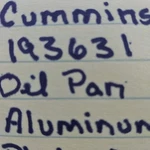 Cummins
193631
Oil Pan
Aluminum